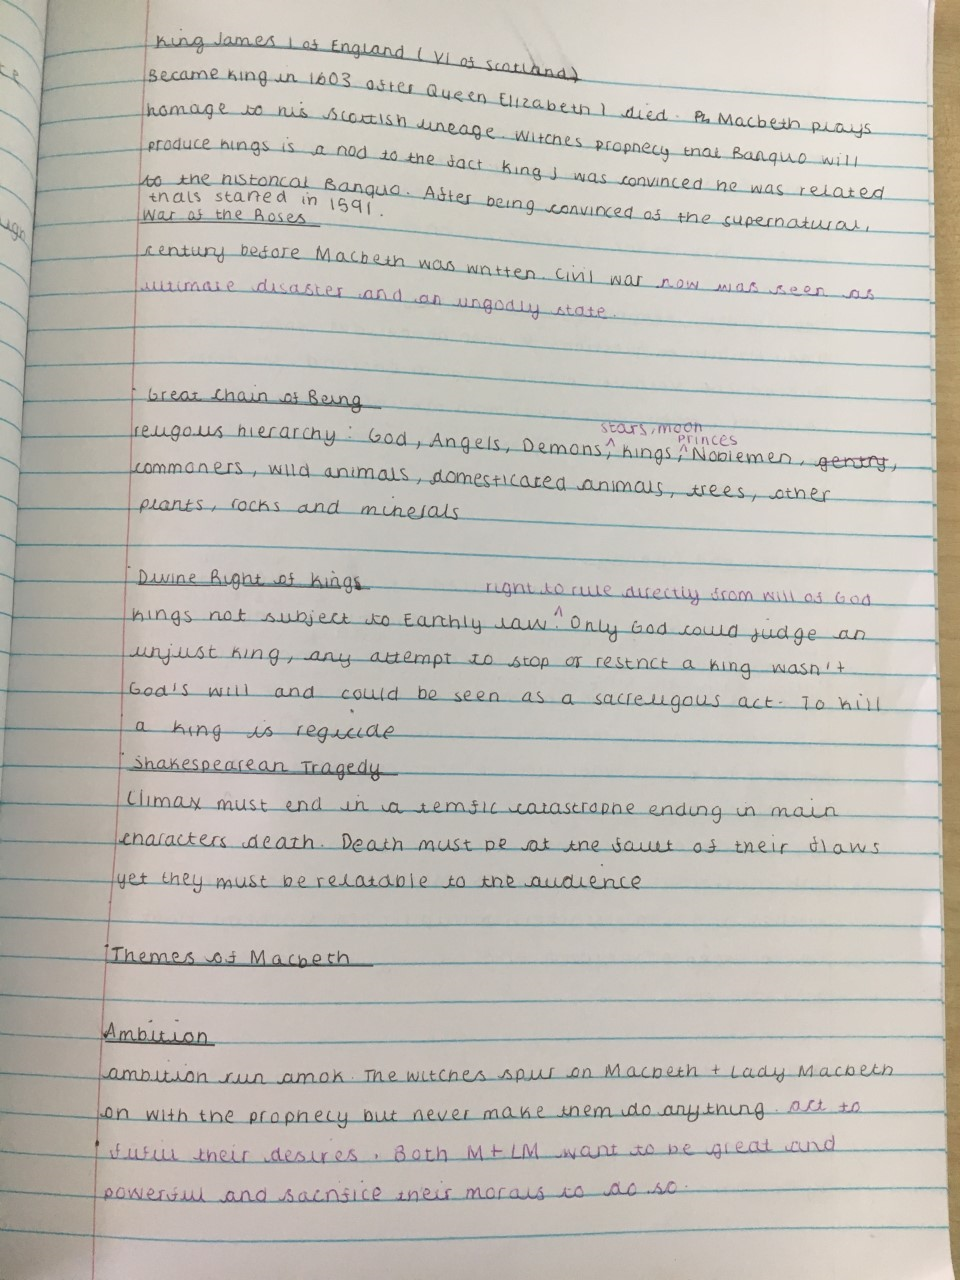 King James I of England (VI of Scotland)
Became king in 1603 after Queen Elizabeth I died. Macbeth plays
homage to his Scottish lineage. Witches prophecy that Banquo will
produce kings is a nod to the fact King J was convinced he was related
to the historical Banquo. After being convinced of the supernatural,
trials started in 1591.
War of the Roses
century before Macbeth was written. Civil war now was seen as
ultimate disaster and an ungodly state.
Great Chain of Being
stars, moon
princes
religous hierarchy: God, Angels, Demons, ^ kings, ^ Noblemen, gentry,
commoners, wild animals, domesticated animals, trees, other
plants, rocks and minerals
Divine Right of Kings
right to rule directly from will of God
kings not subject to Earthly law ^. Only God could judge an
unjust king, any attempt to stop or restrict a king wasn't
God's will and could be seen as a sacreligous act. To kill
a king is regicide
Shakespearean Tragedy
Climax must end in a terrific catastrophe ending in main
characters death. Death must be at the fault of their flaws
yet they must be relatable to the audience
Themes of Macbeth
Ambition
ambition run amok. The witches spur on Macbeth + Lady Macbeth
on with the prophecy but never make them do anything. act to
fufill their desires. Both M + LM want to be great and
powerful and sacrifice their morals to do so.